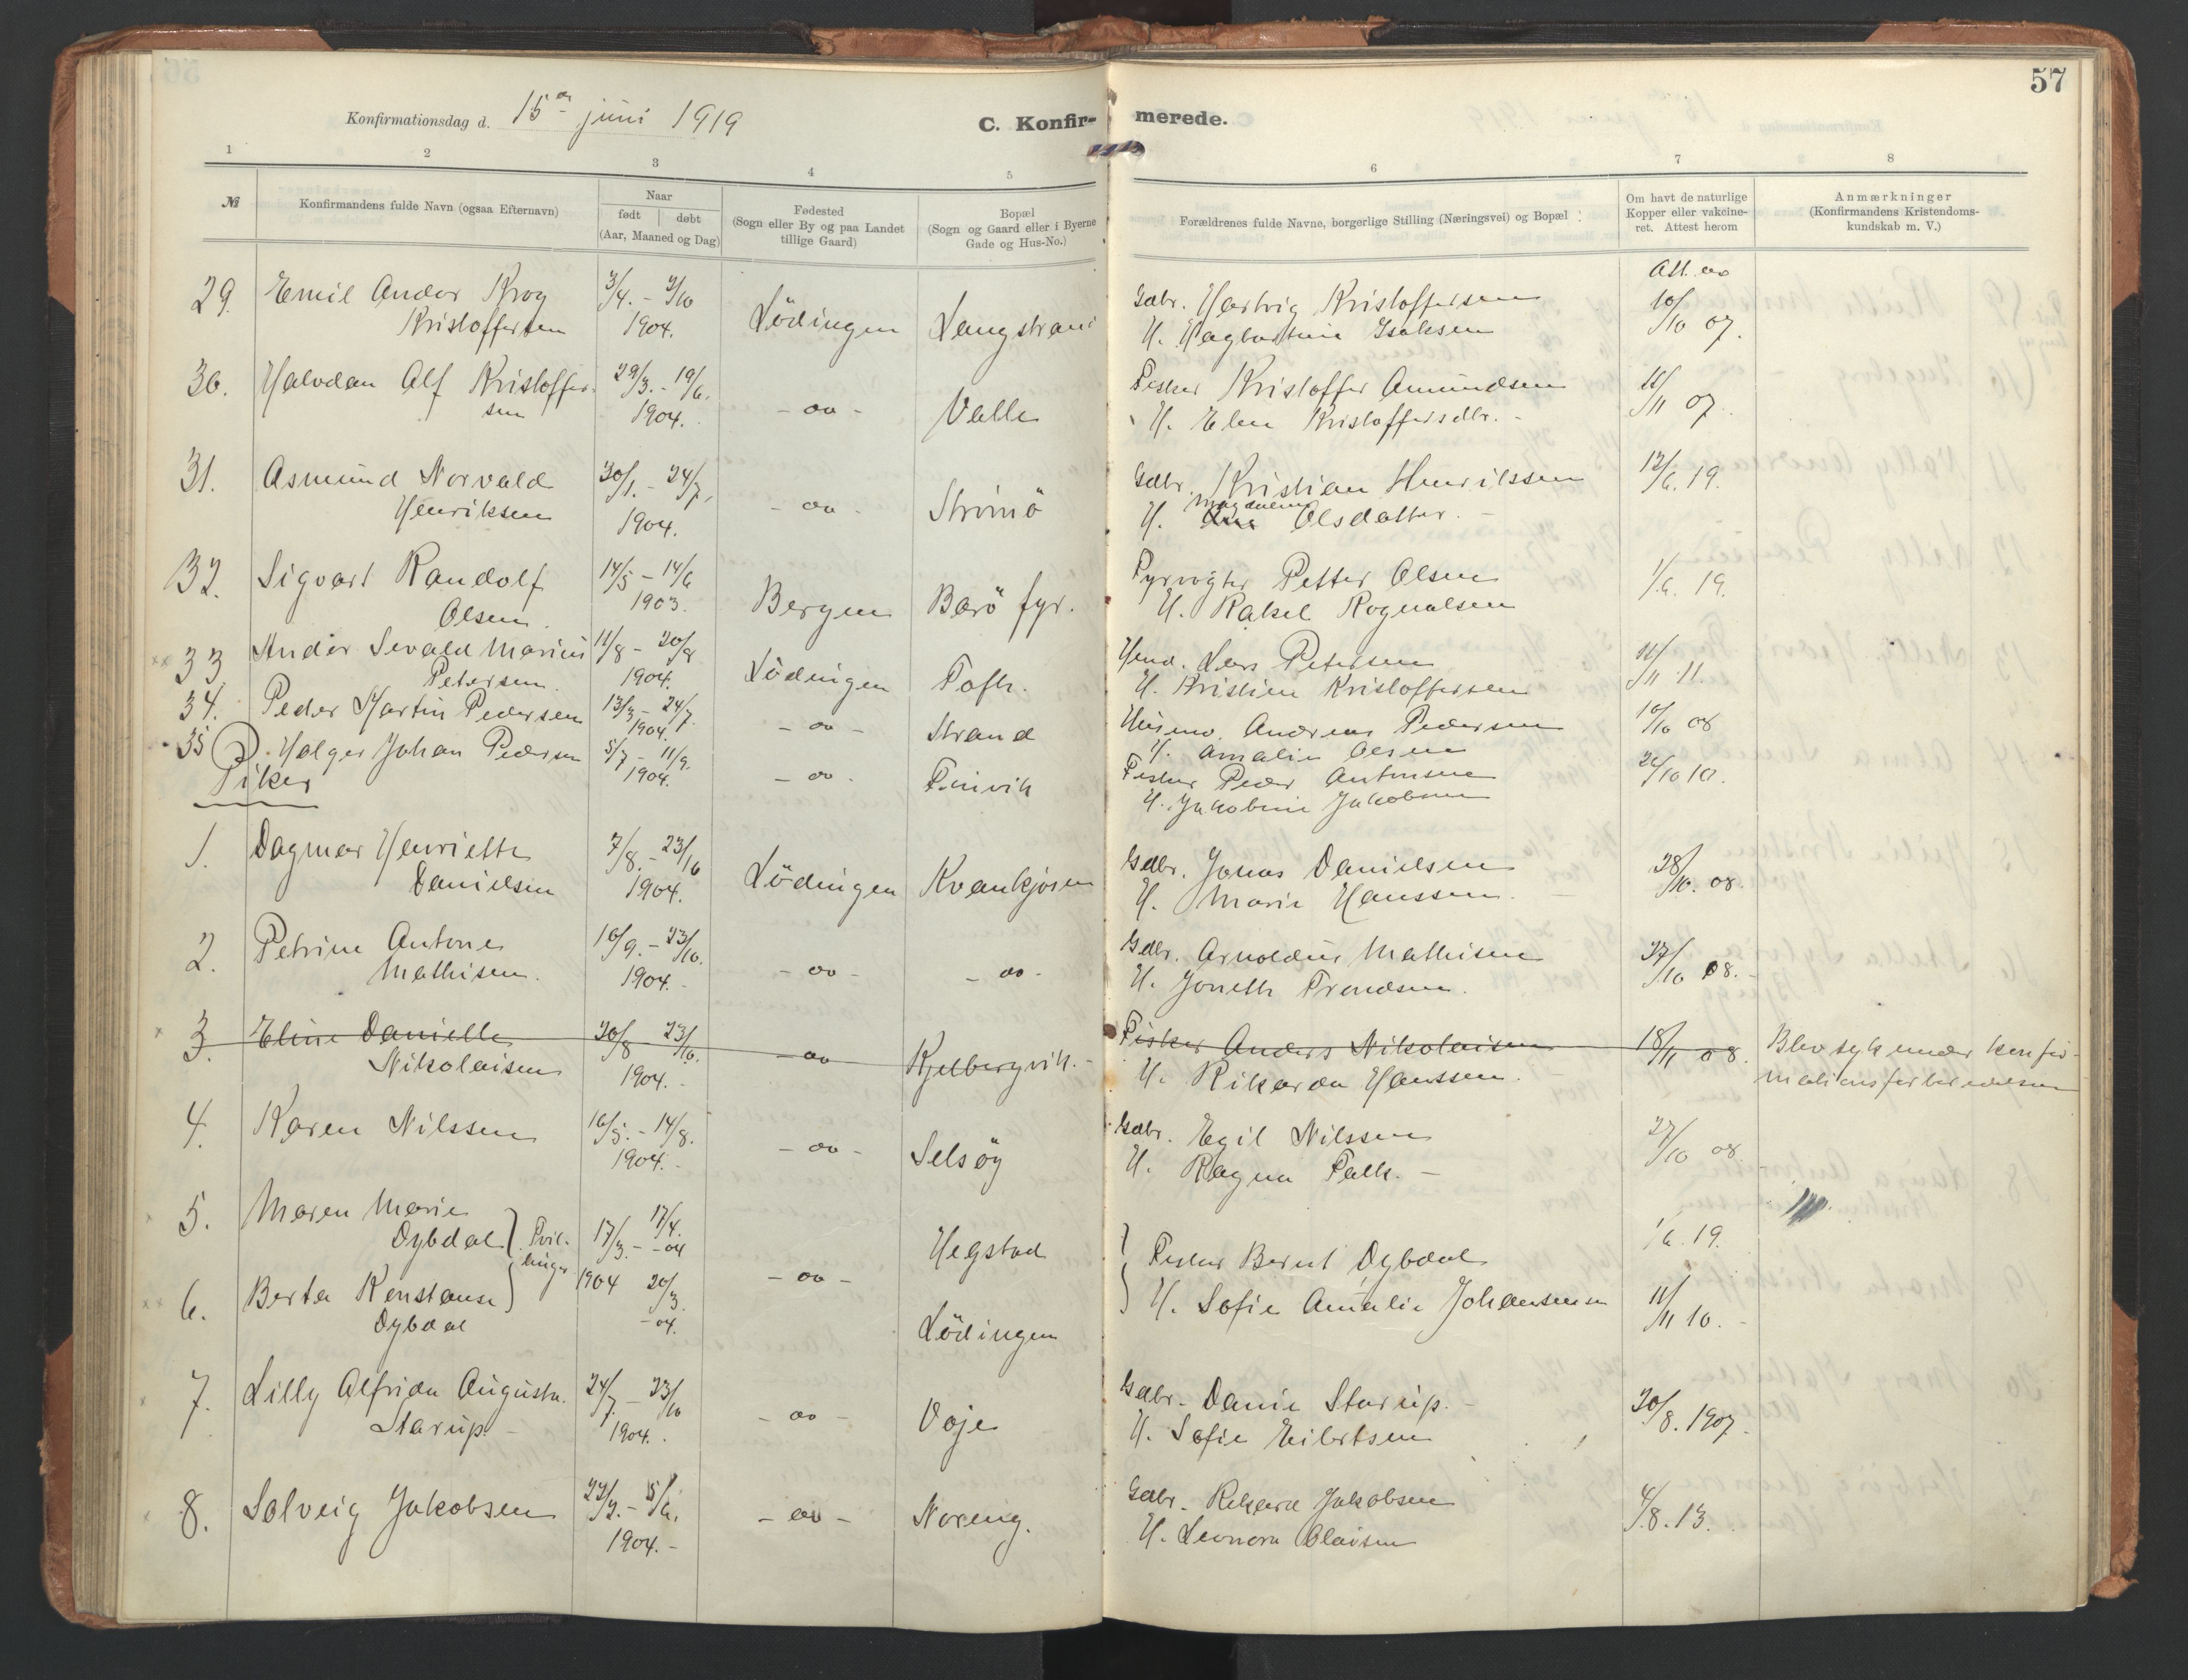 57
Konfirmationsdag d. 15de juni 1919
C. Konfir- merede.
1 2 3 4 5 6 7 8
№
Konfirmandens fulde Navn (ogsaa Efternavn)
Naar
født | døbt
(Aar, Maaned og Dag)
Fødested
(Sogn eller By og paa Landet
tillige Gaard)
Bopæl
(Sogn og Gaard eller i Byerne
Gade og Hus-No.)
Forældrenes fulde Navne, borgerlige Stilling (Næringsvei) og Bopæl
Om havt de naturlige
Kopper eller vakcine-
ret. Attest herom
Anmærkninger
(Konfirmandens Kristendoms-
kundskab m. V.)
Att. av
29. Emil Andor Krog 3/4. - 9/10 Lödingen Langstrand Gdbr. Hartvig Kristoffersen 10/10 07.
Kristoffersen 1904. H. Hagbartine Isaksen
30. Halvdan Alf Kristoffer- 29/3. - 19/6. - oo - Valle Fisker Kristoffer Amundsen 11/11 07.
sen 1904. H. Elen Kristoffersdtr. -
31. Asmund Norvald 30/1. - 24/7. - oo - Strömö Gdbr. Kristian Henrikssen 12/6. 19.
Henriksen 1904. H. Magdalene Olsdatter. -
32. Sigvart Randolf 14/5 - 14/6 Bergen Barö fyr. Fyrvogter Petter Olsen 1/6. 19.
Olsen. 1903. H. Rakel Rognalsen
33 Andor Sevald Marius 11/8 - 20/8 Lödingen Toft. Hmd. Lars Petersen 11/11 11.
Petersen. 1904. H. Kristine Kristoffersen
34. Peder Martin Pedersen 13/3 - 24/7. - oo - Strand Husmd. Andreas Pedersen 10/10 08
1904. H. Amalie Olsen
35 Holger Johan Pedersen 5/7 - 11/9. - oo - Finvik Fisker Peder Antonsen 26/10 10.
1904. H. Jakobine Jakobsen
Piker
1. Dagmar Henriette 7/8. - 23/10 Lödingen Kvankjosen Gdbr. Jonas Danielsen 28/10. 08.
Danielsen 1904. H. Marie Hanssen.
2. Petrine Antone 16/9. - 23/10. - oo - - oo - Gdbr. Arnoldus Mathisen 27/10 08.
Mathisen. 1904. - H. Joneth Trondsen.
3. Eline Danielle 20/8 23/10. - oo Kjelbergvik. - Fisker Anders Nikolaisen 18/11 08. Blev syk under konfir-
Nikolaisen 1904. - H. Rikarda Hanssen. mationsforberedelsen
4. Karen Nilssen 16/5. - 14/8. - oo - Selsöy Gdbr. Egil Nilssen 27/10 08.
1904. - H. Ragna Falk. -
5. Maren Marie 17/4. Hegstad 1/6. 19.
Dybdal } Tvil- 17/3. - - 04 Fisker Bernt Dybdal
linger - oo -
6. Berta Konstanse 1904 20/3. H. Sofie Amalie Johansensen 11/11 10.
Dybdal - 04. Lödingen
7. Lilly Alfrida Augusta 24/7. - 23/10 - oo - Voje Gdbr. Danie Starup. - 30/8. 1907.
Starup. - 1904. H. Sofie Eilertsen
8. Solveig Jakobsen 22/3. - 5/6. - oo - Noreng. Gdbr. Rikard Jakobsen 4/8. 13.
1904. - H. Leonora Olaisen